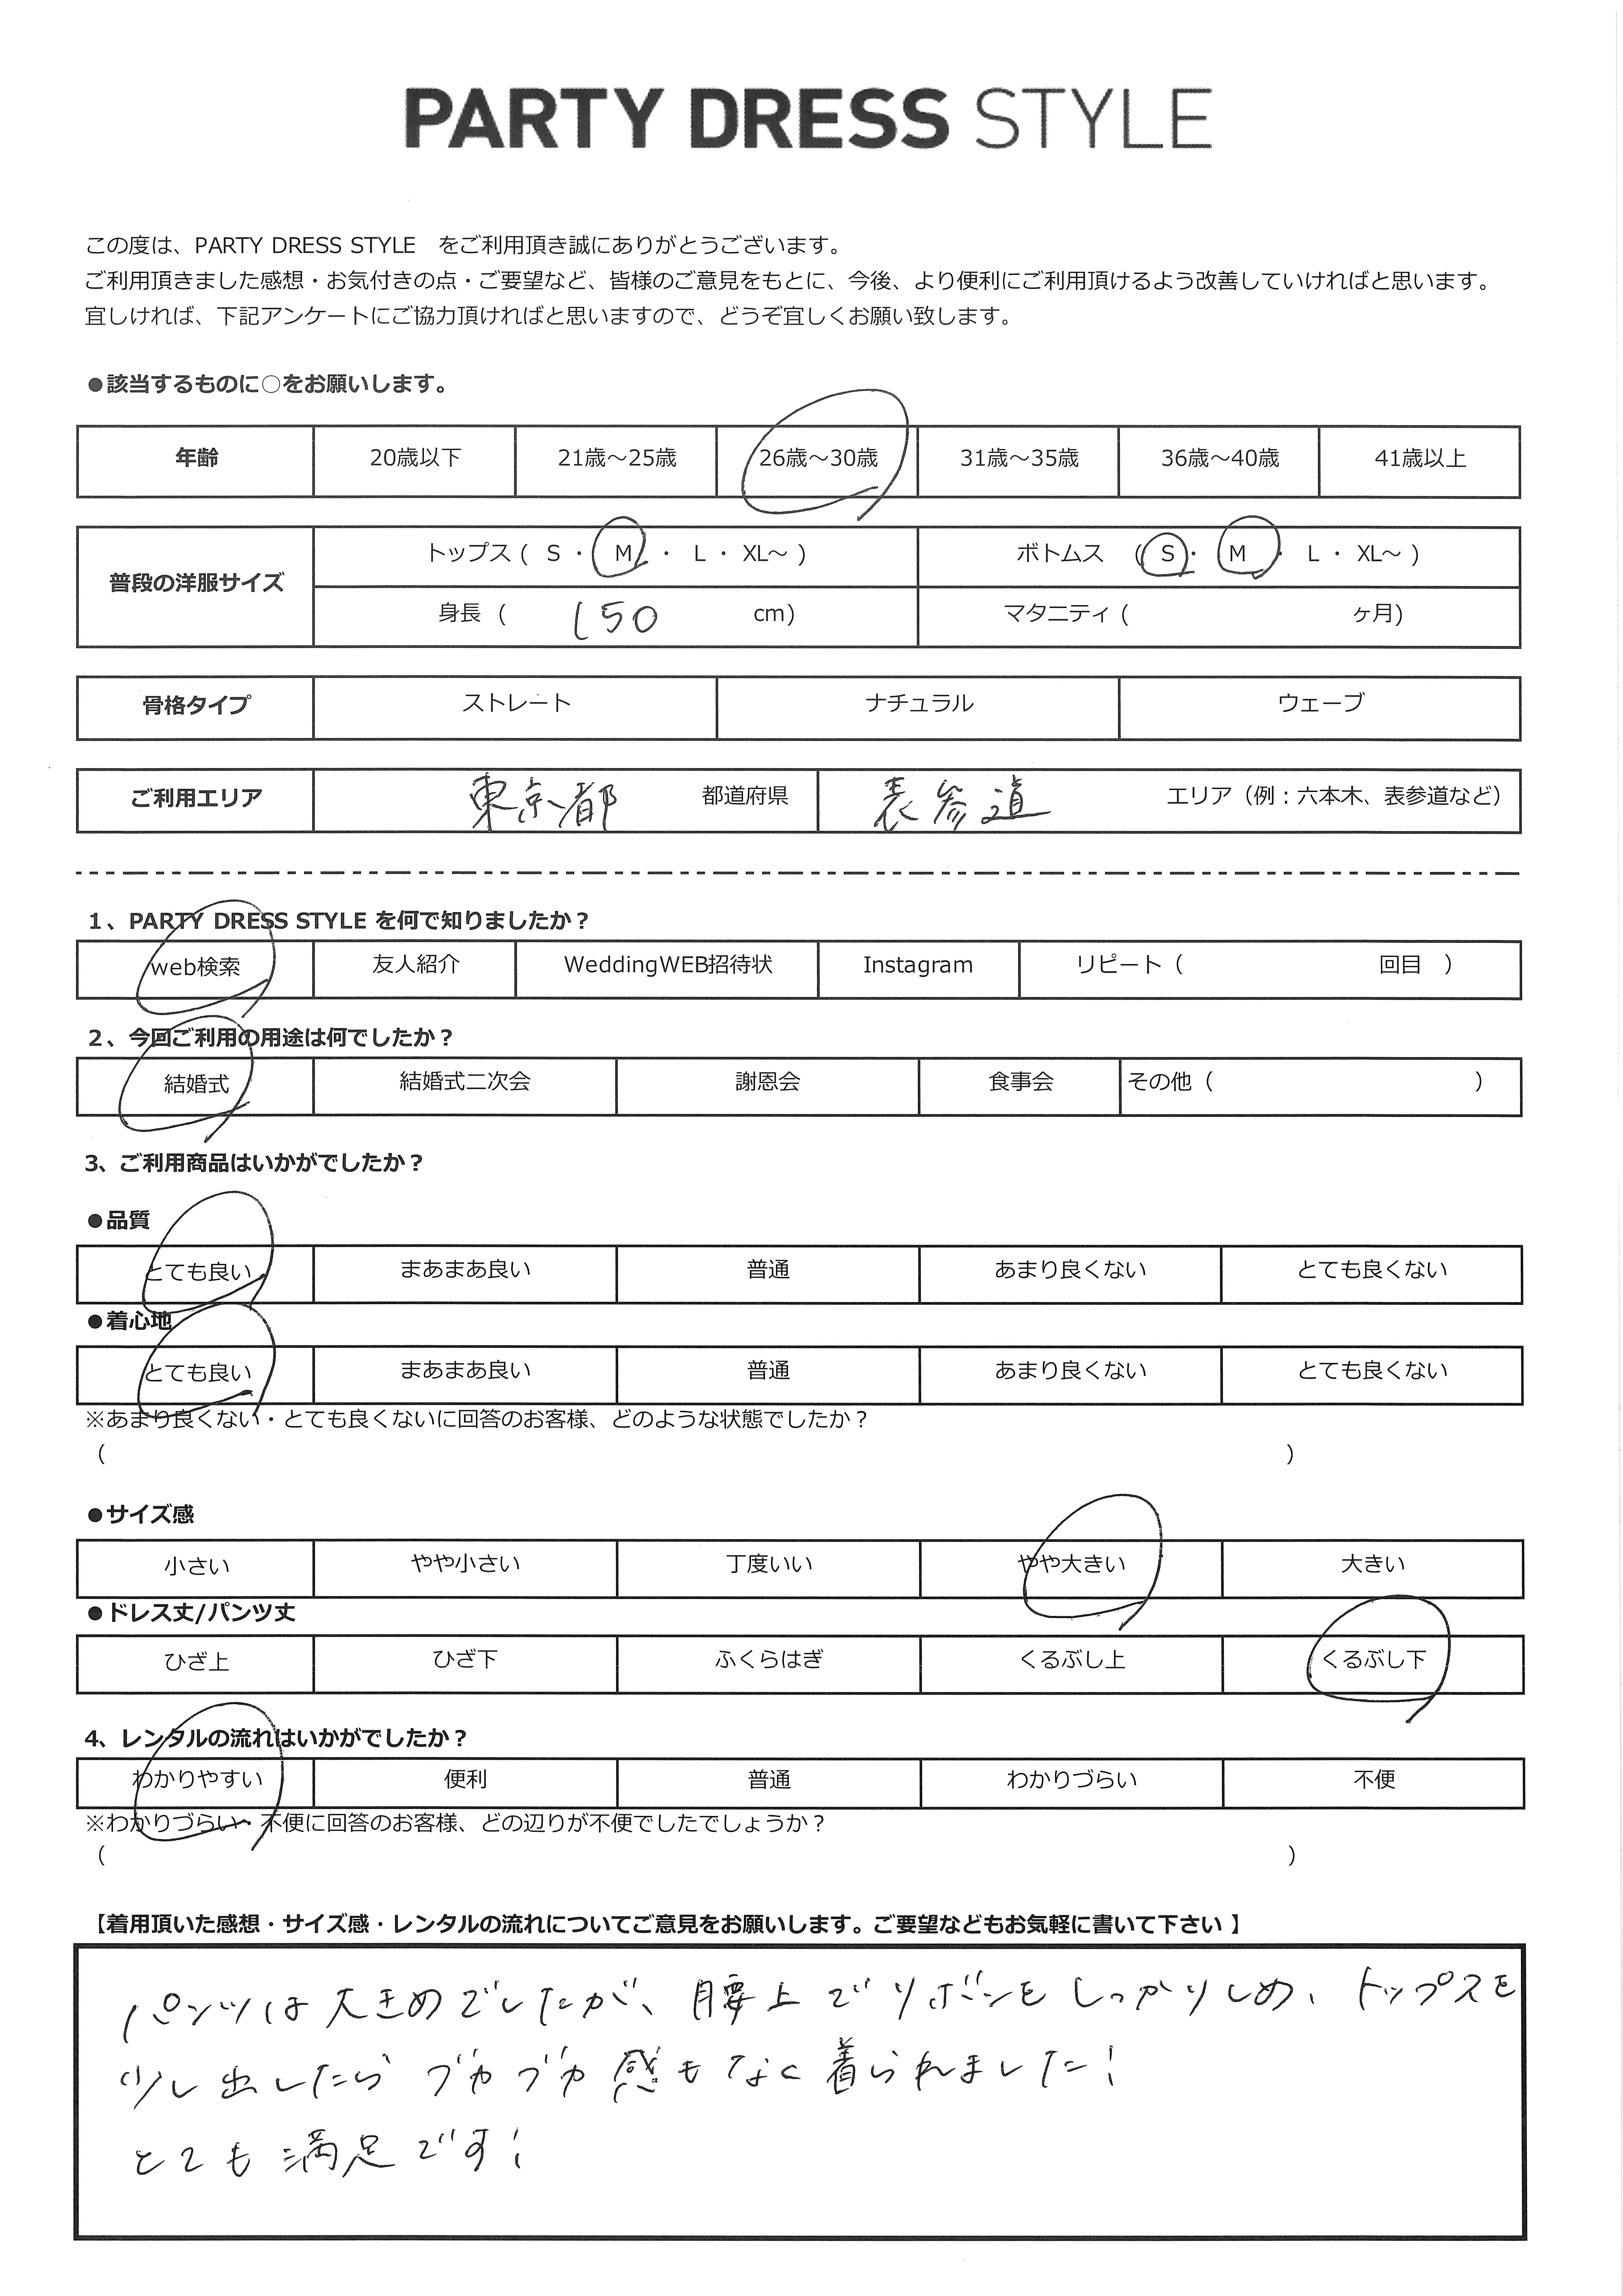 PARTY DRESS STYLE
この度は、PARTY DRESS STYLE をご利用頂き誠にありがとうございます。
ご利用頂きました感想・お気付きの点・ご要望など、皆様のご意見をもとに、今後、より便利にご利用頂けるよう改善していければと思います。
宜しければ、下記アンケートにご協力頂ければと思いますので、どうぞ宜しくお願い致します。
●該当するものに○をお願いします。
年齢 20歳以下 21歳～25歳 26歳～30歳 31歳～35歳 36歳～40歳 41歳以上
普段の洋服サイズ トップス ( S ・ M ・ L ・ XL～ ) ボトムス ( S ・ M ・ L ・ XL～ )
身長 ( 150 cm) マタニティ ( ヶ月)
骨格タイプ ストレート ナチュラル ウェーブ
ご利用エリア 東京都 都道府県 表参道 エリア（例：六本木、表参道など）
1、PARTY DRESS STYLE を何で知りましたか？
web検索 友人紹介 WeddingWEB招待状 Instagram リピート（ 回目 ）
2、今回ご利用の用途は何でしたか？
結婚式 結婚式二次会 謝恩会 食事会 その他（ ）
3、ご利用商品はいかがでしたか？
●品質
とても良い まあまあ良い 普通 あまり良くない とても良くない
●着心地
とても良い まあまあ良い 普通 あまり良くない とても良くない
※あまり良くない・とても良くないに回答のお客様、どのような状態でしたか？
（ ）
●サイズ感
小さい やや小さい 丁度いい やや大きい 大きい
●ドレス丈/パンツ丈
ひざ上 ひざ下 ふくらはぎ くるぶし上 くるぶし下
4、レンタルの流れはいかがでしたか？
わかりやすい 便利 普通 わかりづらい 不便
※わかりづらい・不便に回答のお客様、どの辺りが不便でしたでしょうか？
（ ）
【着用頂いた感想・サイズ感・レンタルの流れについてご意見をお願いします。ご要望などもお気軽に書いて下さい 】
パンツは大きめでしたが、腰上でリボンをしっかりしめ、トップスを
少し出したらブカブカ感もなく着られました!
とても満足です!